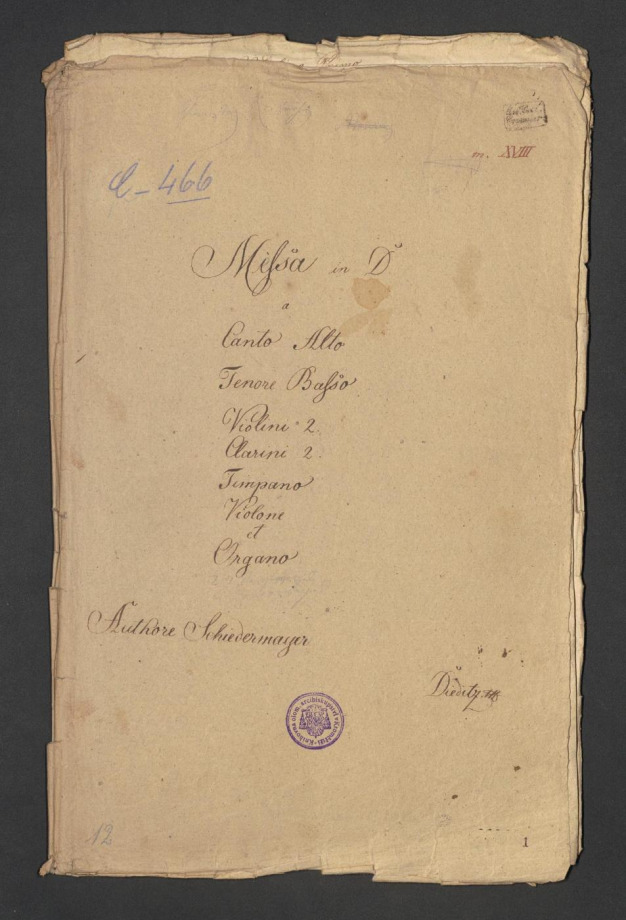 m. XVIII
C-466
Missa in D
a
Canto Alto
Tenore Basso
Violini 2.
Clarini 2.
Timpano
Violone
et
Organo
Authore Schiedermayer
12
1